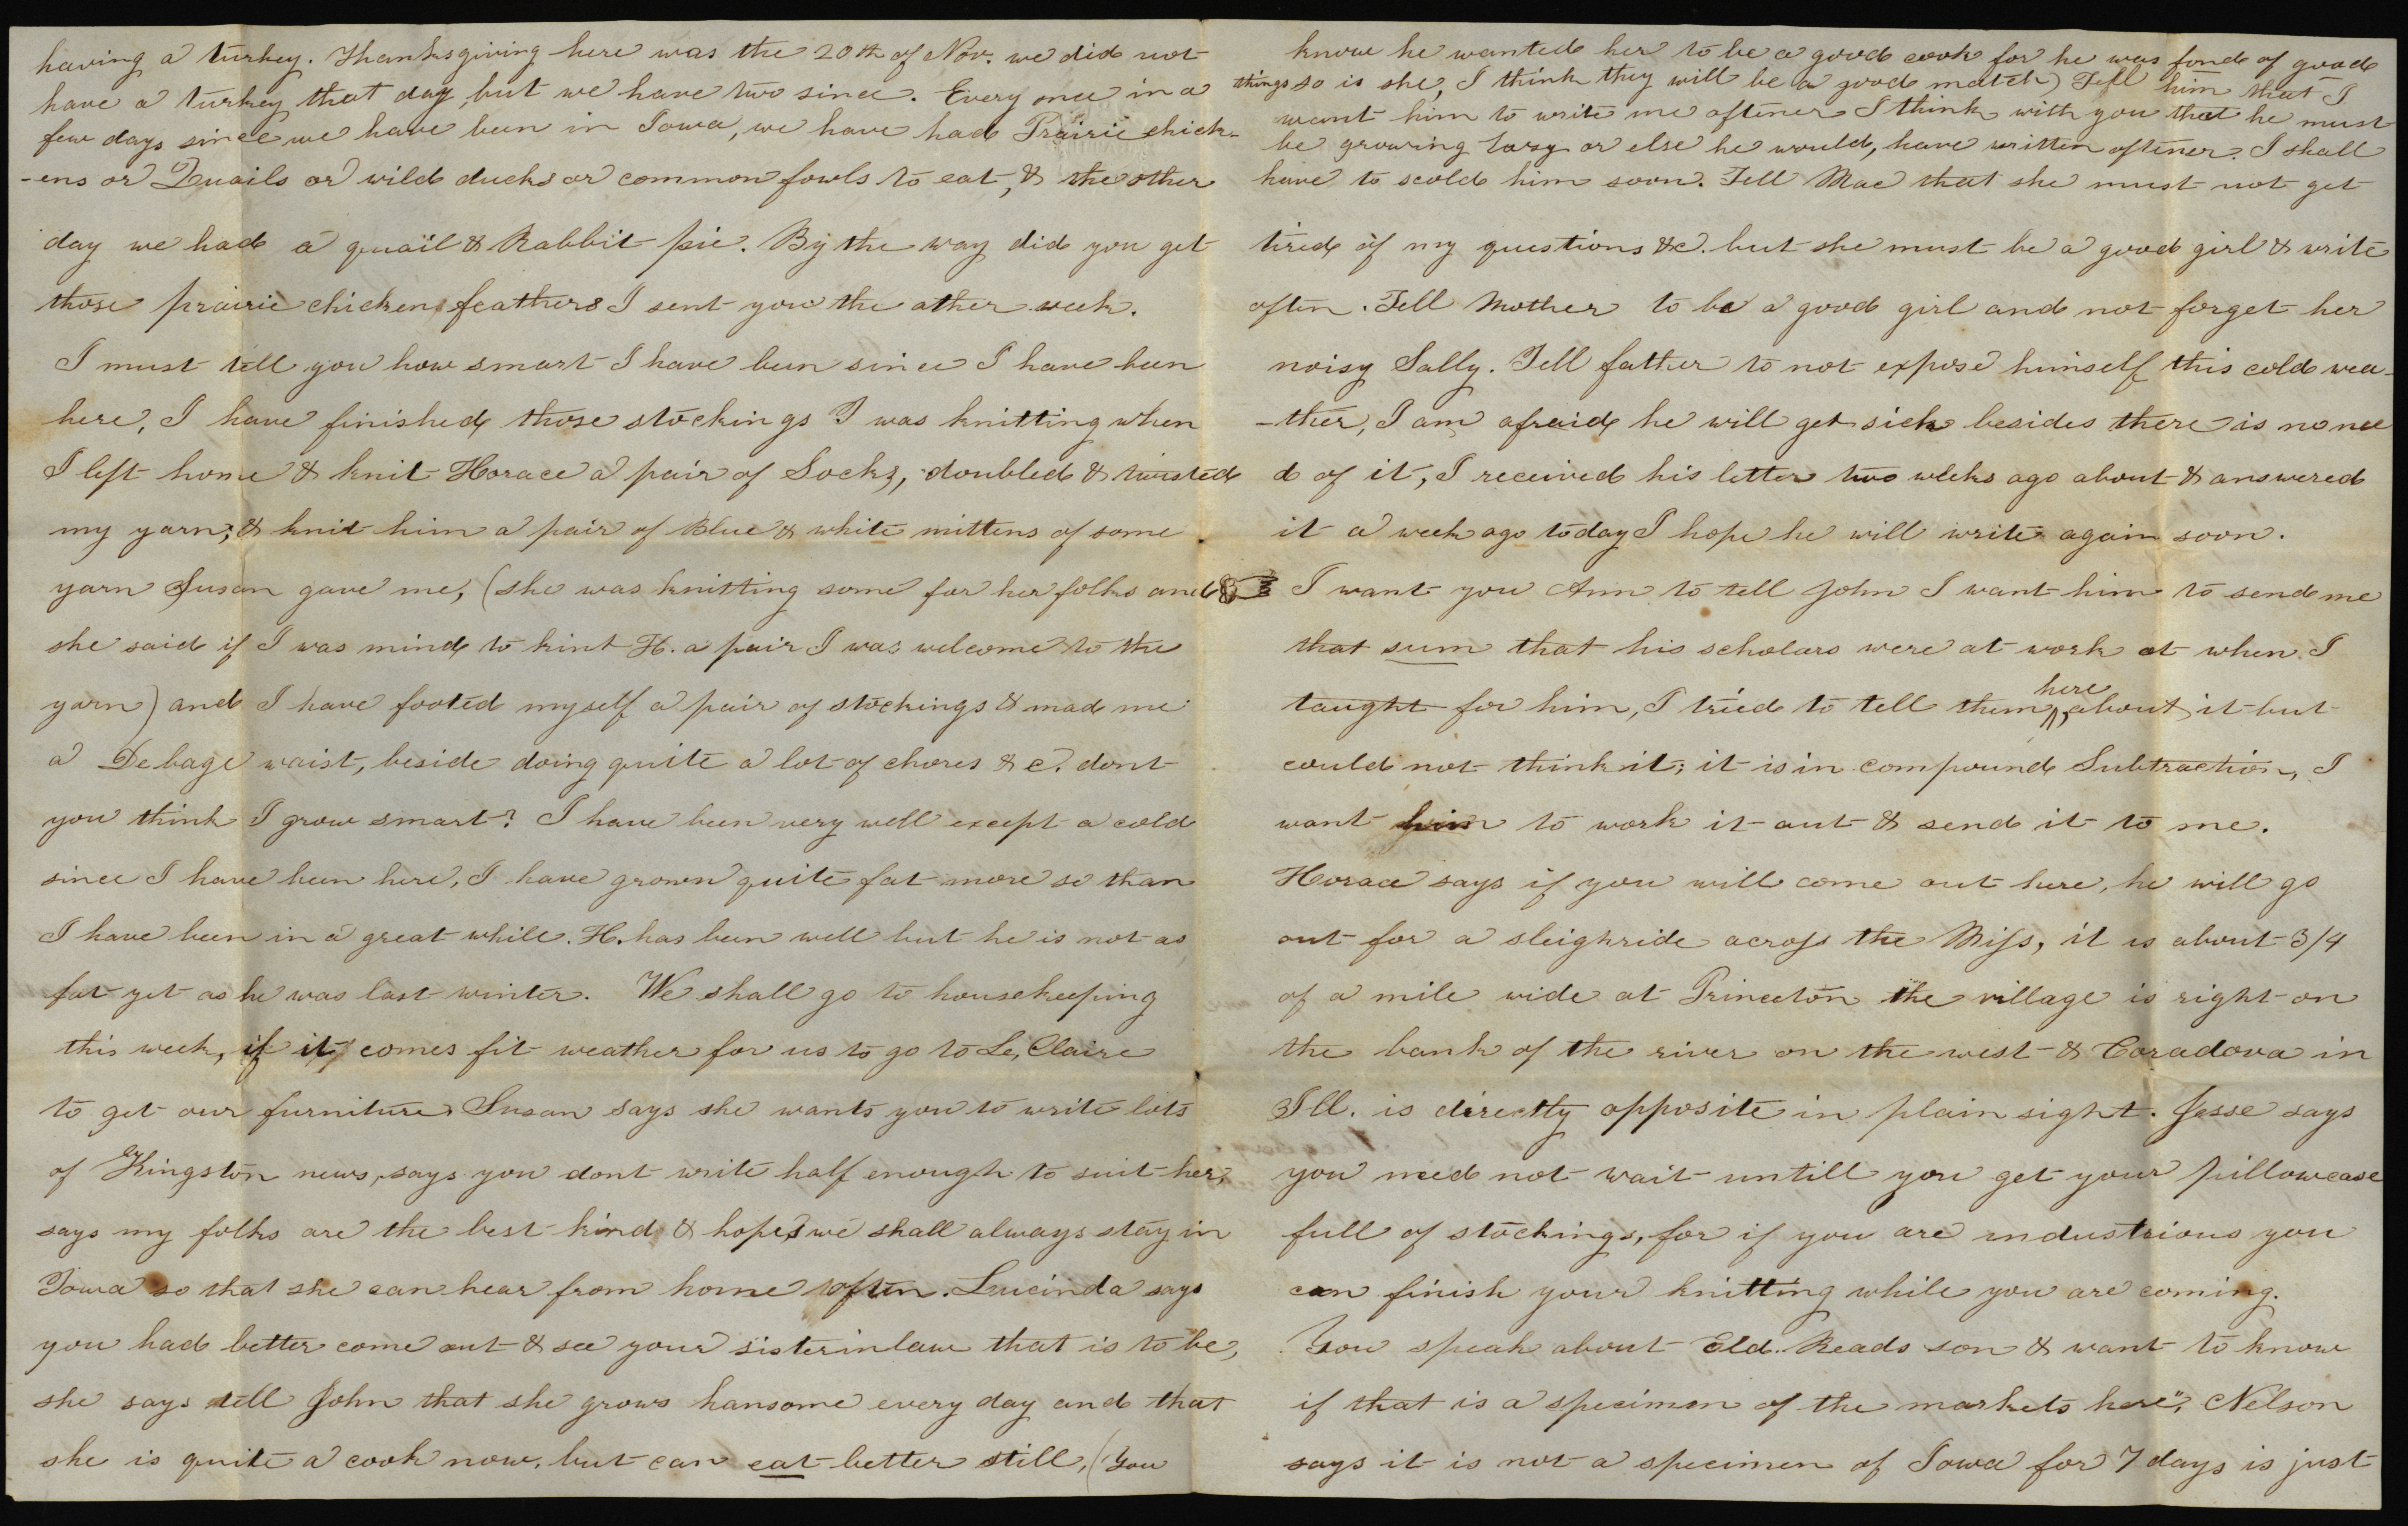 having a turkey. Thanksgiving here was the 20th of Nov. we did not
have a turkey that day, but we have two since. Every once in a
few days since we have been in Iowa, we have had Prairie chick-
-ens or Quails or wild ducks or common fowls to eat, & the other
day we had a quail & Rabbit pie. By the way did you get
those prairie chicken feathers I sent you the other week.
I must tell you how smart I have been since I have been
here, I have finished those stockings I was knitting when
I left home & knit Horace a pair of Socks, doubled & twisted
my yarn; & knit him a pair of Blue & white mittens of some
yarn Susan gave me, (she was knitting some for her folks and
she said if I was mind to kint H. a pair I was welcome to the
yarn) and I have footed myself a pair of stockings & mad me
a Debage waist, beside doing quite a lot of chores &c. dont
you think I grow smart? I have been very well except a cold
since I have been here, I have grown quite fat more so than
I have been in a great while. H. has been well but he is not as
fat yet as he was last winter. We shall go to housekeeping
this week, if it comes fit weather for us to go to Le, Claire
to get our furniture Susan says she wants you to write lots
of Kingston news, says you dont write half enough to suit her,
says my folks are the best kind & hopes we shall always stay in
Iowa so that she can hear from home often. Lucinda says
you had better come out & see your sisterinlaw that is to be,
she says tell John that she grows hansome every day and that
she is quite a cook now, but can eat better still, (You
know he wanted her to be a good cook for he was fond of good
things so is she, I think they will be a good match) Tell him that I
want him to write me oftener I think with you that he must
be growing lazy or else he would, have written oftener. I shall
have to scold him soon. Tell Mae that she must not get
tired of my questions &c. but she must be a good girl & write
often. Tell Mother to be a good girl and not forget her
noisy Sally. Tell father to not expose himself this cold wea-
-ther, I am afraid he will get sick besides there is no nee
d of it, I received his letter two weeks ago about & answered
it a week ago today I hope he will write again soon.
I want you Ann to tell John I want him to send me
that sum that his scholars were at work at when I
taught for him, I tried to tell them here about it but
could not think it; it is in compound Subtraction, I
want him to work it out & send it to me.
Horace says if you will come out here, he will go
out for a sleighride across the Miss, it is about 3/4
of a mile wide at Princeton the village is right on
the bank of the river on the west & Coradova in
Ill. is directly opposite in plain sight. Jesse says
you need not wait untill you get your pillowcase
full of stockings, for if you are industrious you
can finish your knitting while you are coming.
You speak about Eld. Reads son & want to know
if that is a specimen of the markets here", Nelson
says it is not a specimen of Iowa for 7 days is just